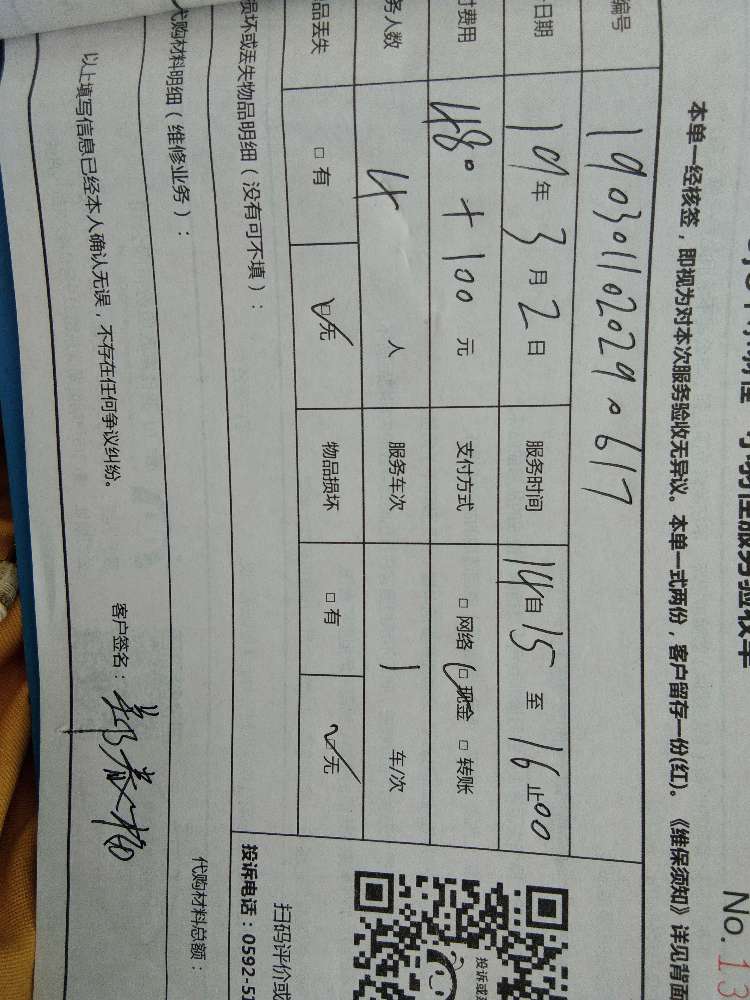 No. 13
本单一经核签，即视为对本次服务验收无异议。本单一式两份，客户留存一份(红)。《维保须知》详见背面
编号 1903011020290617
日期 19年3月2日 服务时间 14自15至16止00
费用 480+100元 支付方式 □网络 ☑现金 □转账
务人数 4人 服务车次 1车/次
品丢失 □有 ☑无 物品损坏 □有 ☑无
损坏或丢失物品明细（没有可不填）：
扫码评价或
投诉电话：0592-5
代购材料明细（维修业务）：
代购材料总额：
以上填写信息已经本人确认无误，不存在任何争议纠纷。
客户签名：